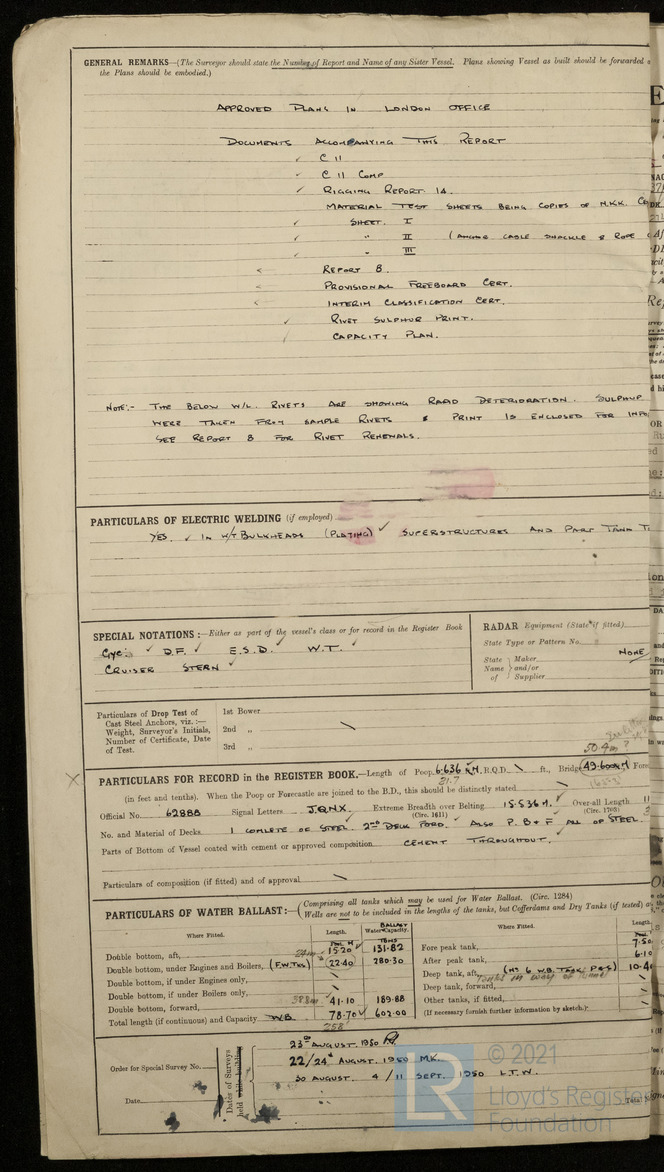 GENERAL REMARKS—(The Surveyor should state the Number of Report and Name of any Sister Vessel. Plans showing Vessel as built should be forwarded
the Plans should be embodied.)
APPROVED PLANS IN LONDON OFFICE
DOCUMENTS ACCOMPANYING THIS REPORT
✓ C 11
✓ C 11 COMP
✓ RIGGING REPORT 14.
MATERIAL TEST SHEETS BEING COPIES OF N.K.K.
✓ SHEET. I
✓ " II (ANCHOR CABLE SHACKLE & ROPE
✓ " III
REPORT 8.
PROVISIONAL FREEBOARD CERT.
INTERIM CLASSIFICATION CERT.
✓ RIVET SULPHUR PRINT.
CAPACITY PLAN.
NOTE:- THE BELOW W/L. RIVETS ARE SHOWING RAPID DETERIORATION. SULPHUR
WERE TAKEN FROM SAMPLE RIVETS & PRINT IS ENCLOSED FOR INFO
SEE REPORT 8 FOR RIVET RENEWALS.
PARTICULARS OF ELECTRIC WELDING (if employed)
YES. ✓ IN W/T BULKHEADS (PLATING) ✓ SUPERSTRUCTURES AND PART TANK
SPECIAL NOTATIONS:—Either as part of the vessel's class or for record in the Register Book
✓ D.F. ✓ E.S.D. ✓ W.T. ✓
CRUISER STERN ✓
RADAR Equipment (State if fitted)
State Type or Pattern No.
NONE
State Name of Maker and/or Supplier
Particulars of Drop Test of Cast Steel Anchors, viz.:— Weight, Surveyor's Initials, Number of Certificate, Date of Test.
1st Bower
2nd "
3rd "
50.4m ?
PARTICULARS FOR RECORD in the REGISTER BOOK.—Length of Poop 6.636 M. R.Q.D. ft., Bridge 49.600M
21.7
(in feet and tenths). When the Poop or Forecastle are joined to the B.D., this should be distinctly stated
Official No. 62888 Signal Letters J.Q.N.X. Extreme Breadth over Belting 15.536 M. Over-all Length
(Circ. 1611) (Circ. 1703)
No. and Material of Decks 1 COMLETE OF STEEL. 2nd DECK FORD. ✓ ALSO P. B & F ALL OF STEEL.
Parts of Bottom of Vessel coated with cement or approved composition CEMENT THROUGHOUT.
Particulars of composition (if fitted) and of approval
PARTICULARS OF WATER BALLAST:— (Comprising all tanks which may be used for Water Ballast. (Circ. 1284)
Wells are not to be included in the lengths of the tanks, but Cofferdams and Dry Tanks (if tested)
Where Fitted. Length. BALLAST Water Capacity. Where Fitted. Length.
TONS
Double bottom, aft, 15.20 131.82 Fore peak tank, 7.50
Double bottom, under Engines and Boilers, (F.W.TKS) 22.40 280.30 After peak tank, 6.10
Double bottom, if under Engines only, Deep tank, aft, (No. 6 W.B. TANK P&S) 10.40
Tanks in way of tunnel
Double bottom, if under Boilers only, Deep tank, forward,
Double bottom, forward, 41.10 189.88 Other tanks, if fitted,
Total length (if continuous) and Capacity W.B. 78.70 602.00 (If necessary furnish further information by sketch.)
258'
Order for Special Survey No.
Date
Dates of Surveys held while building
23rd AUGUST. 1950
22/24th AUGUST. 1950 M.K.
30 AUGUST. 4/11 SEPT. 1950 L.T.W.
LR
© 2021
Lloyd's Register
Foundation